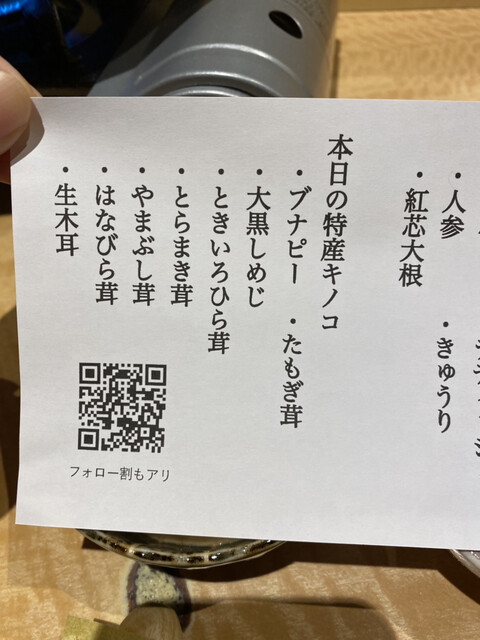 ・人参　・きゅうり
・紅芯大根
本日の特産キノコ
・ブナピー　・たもぎ茸
・大黒しめじ
・ときいろひら茸
・とらまき茸
・やまぶし茸
・はなびら茸
・生木耳
フォロー割もアリ